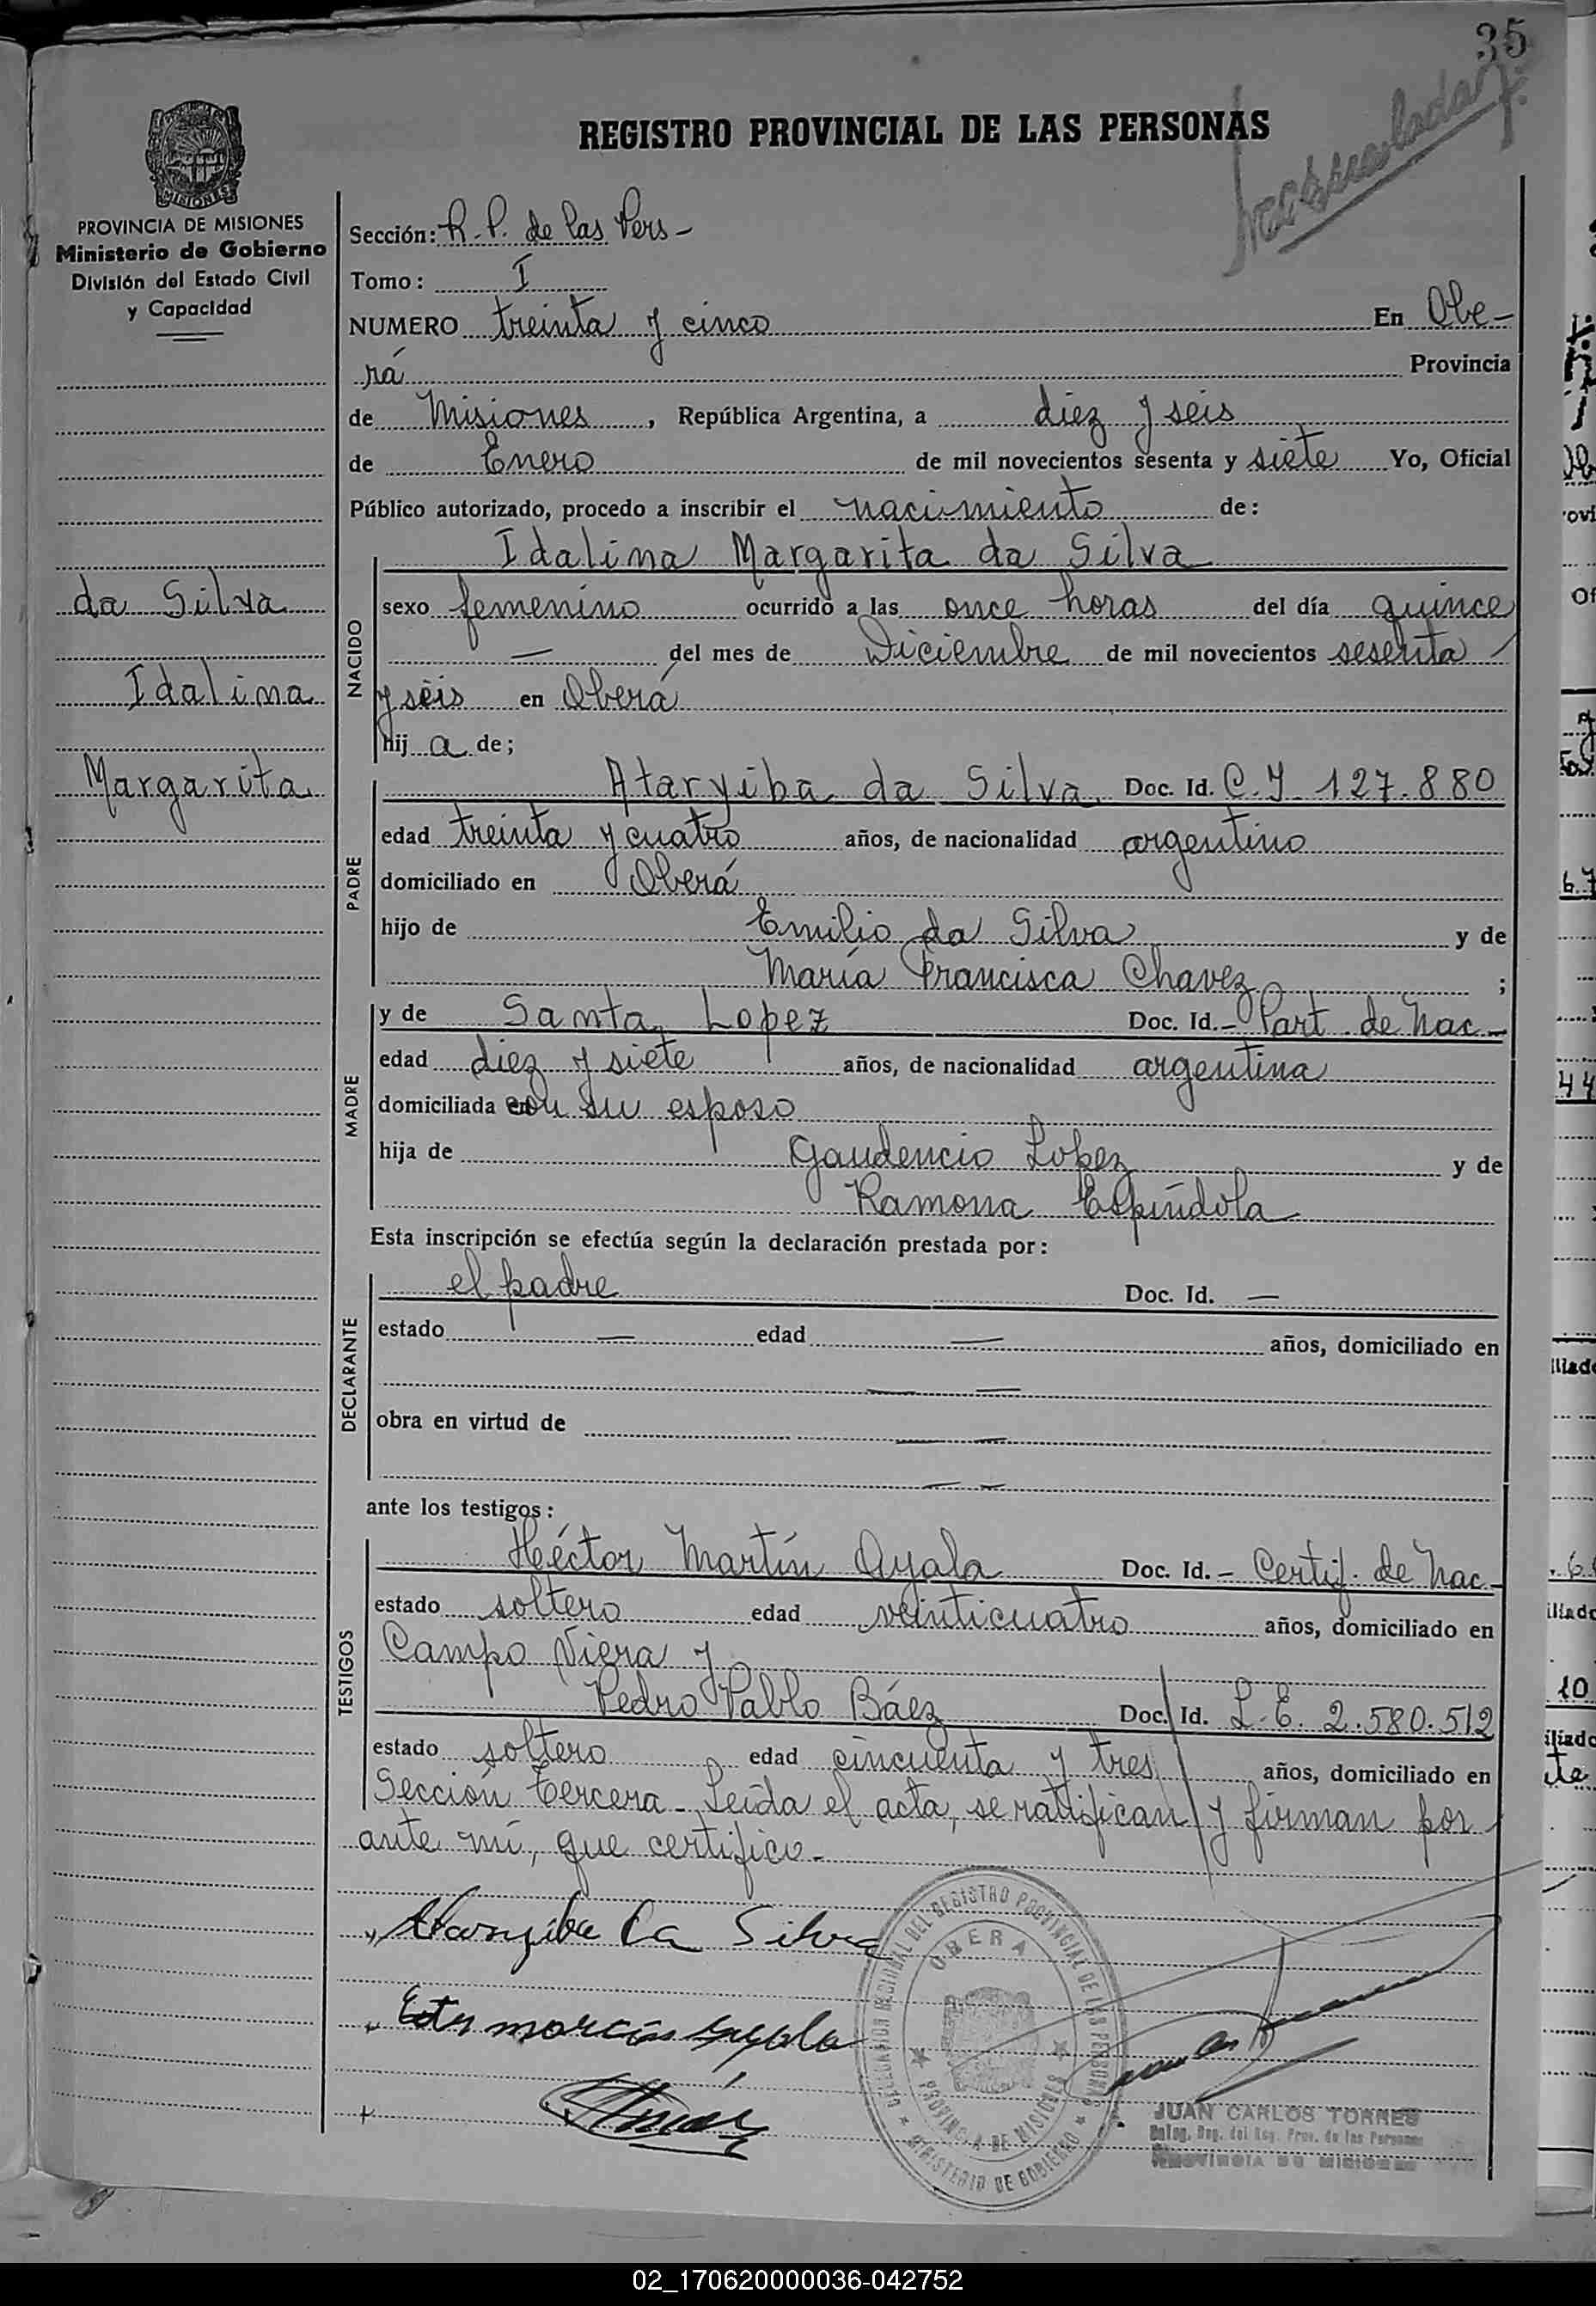 35
REGISTRO PROVINCIAL DE LAS PERSONAS
PROVINCIA DE MISIONES
Ministerio de Gobierno
División del Estado Civil
y Capacidad
da Silva
Idalina
Margarita
Sección: R.P. de las Pers-
Tomo: I
NUMERO treinta y cinco En Obe-
rá Provincia
de Misiones, República Argentina, a diez y seis
de Enero de mil novecientos sesenta y siete Yo, Oficial
Público autorizado, procedo a inscribir el nacimiento de:
NACIDO
Idalina Margarita da Silva
sexo femenino ocurrido a las once horas del día quince
— del mes de Diciembre de mil novecientos sesenta
y seis en Oberá
hija de;
PADRE
Ataryiba da Silva Doc. Id. C.I. 127.880
edad treinta y cuatro años, de nacionalidad argentino
domiciliado en Oberá
hijo de Emilio da Silva y de
María Francisca Chavez ;
MADRE
y de Santa Lopez Doc. Id.- Part. de Nac-
edad diez y siete años, de nacionalidad argentina
domiciliada con su esposo
hija de Gaudencio Lopez y de
Ramona Espíndola
Esta inscripción se efectúa según la declaración prestada por:
DECLARANTE
el padre Doc. Id. —
estado — edad — años, domiciliado en
— —
obra en virtud de — —
— —
ante los testigos:
TESTIGOS
Héctor Martín Ayala Doc. Id.- Certif. de Nac-
estado soltero edad veinticuatro años, domiciliado en
Campo Viera y
Pedro Pablo Báez Doc. Id. L.E. 2.580.512
estado soltero edad cincuenta y tres años, domiciliado en
Sección Tercera- Leída el acta, se ratifican y firman por
ante mí, que certifico-
Ataryiba Da Silva
DELEGACION REGIONAL DEL REGISTRO PROVINCIAL DE LAS PERSONAS
OBERA
PROVINCIA DE MISIONES
MINISTERIO DE GOBIERNO
JUAN CARLOS TORRES
Deleg. Reg. del Reg. Prov. de las Personas
PROVINCIA DE MISIONES
02_170620000036-042752